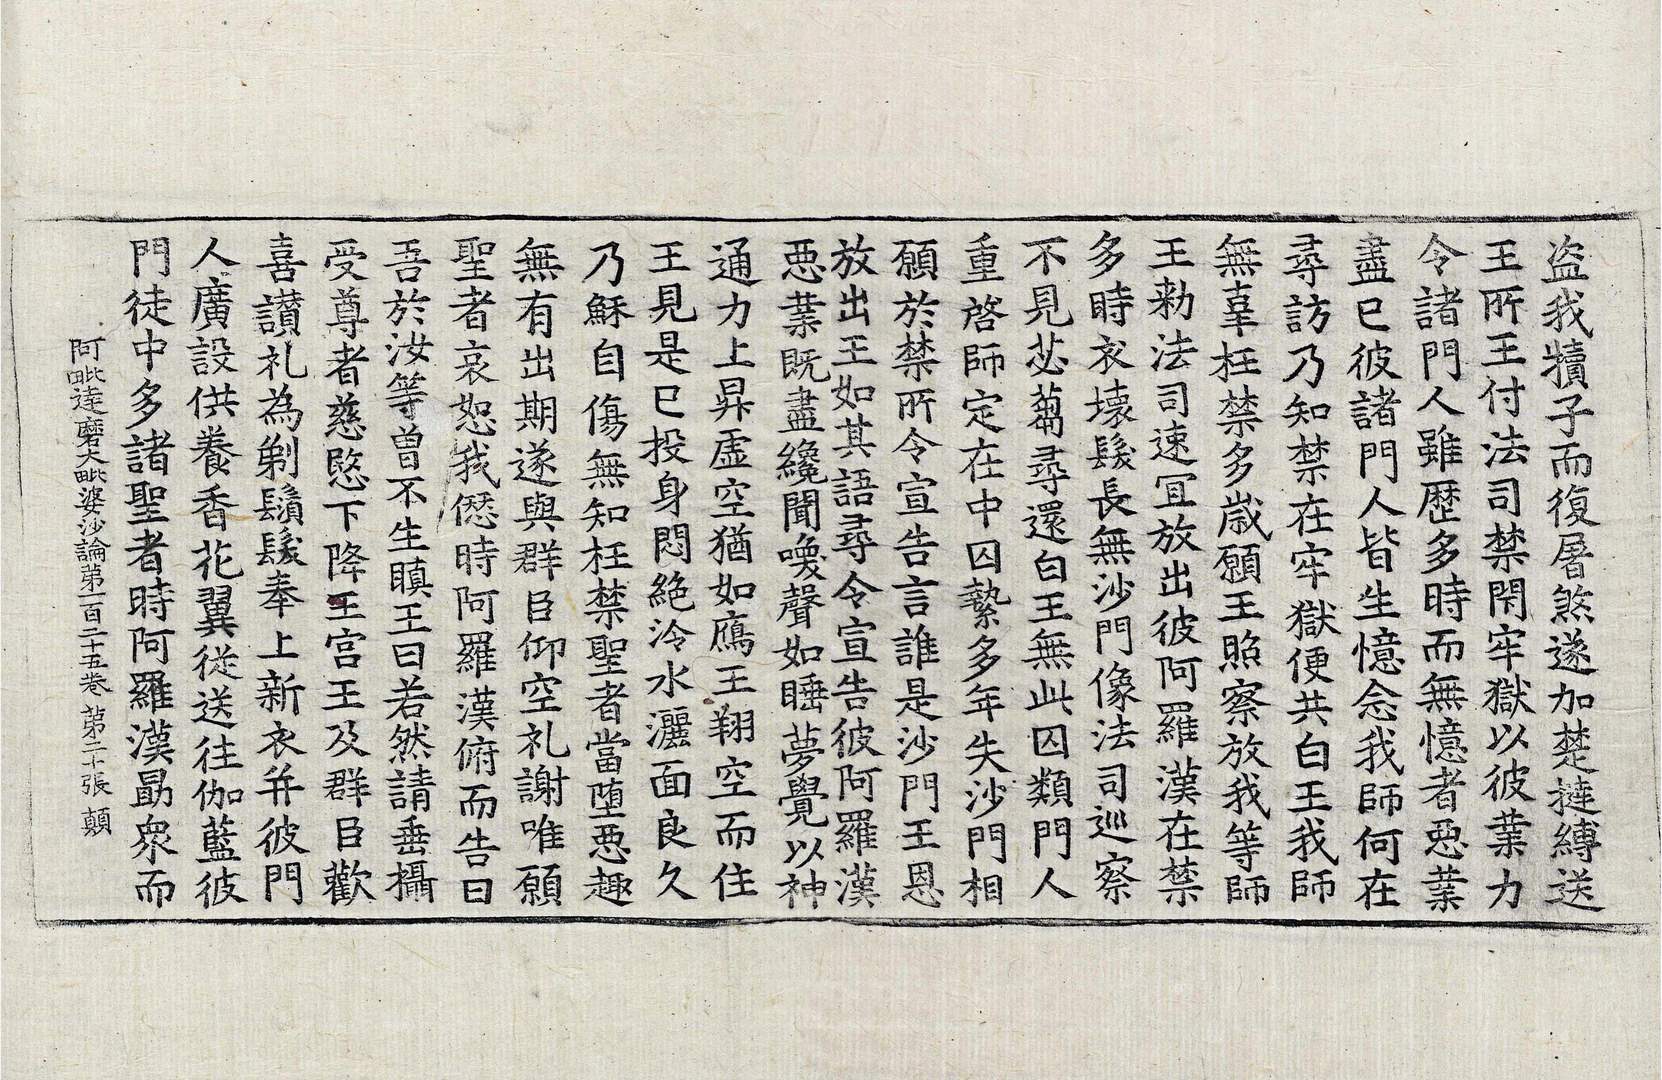 盜我犢子而復屠煞遂加楚撻縛送
王所王付法司禁閇牢獄以彼業力
令諸門人雖歷多時而無憶者惡業
盡已彼諸門人皆生憶念我師何在
尋訪乃知禁在牢獄便共白王我師
無辜枉禁多歲願王照察放我等師
王勑法司速冝放出彼阿羅漢在禁
多時衣壞髮長無沙門像法司巡察
不見苾蒭尋還白王無此囚類門人
重啓師定在中囚縶多年失沙門相
願於禁所令宣告言誰是沙門王恩
放出王如其語尋令宣告彼阿羅漢
惡業既盡纔聞喚聲如睡夢覺以神
通力上昇虛空猶如鴈王翔空而住
王見是已投身悶絶冷水灑面良久
乃穌自傷無知枉禁聖者當墮惡趣
無有出期遂與群臣仰空礼謝唯願
聖者哀恕我愆時阿羅漢俯而告曰
吾於汝等曾不生瞋王曰若然請垂攝
受尊者慈愍下降王宮王及群臣歡
喜讃礼為剃鬚髮奉上新衣并彼門
人廣設供養香花翼從送往伽藍彼
門徒中多諸聖者時阿羅漢勗衆而
阿毗達磨大毗婆沙論第一百二十五卷 第二十張 顛